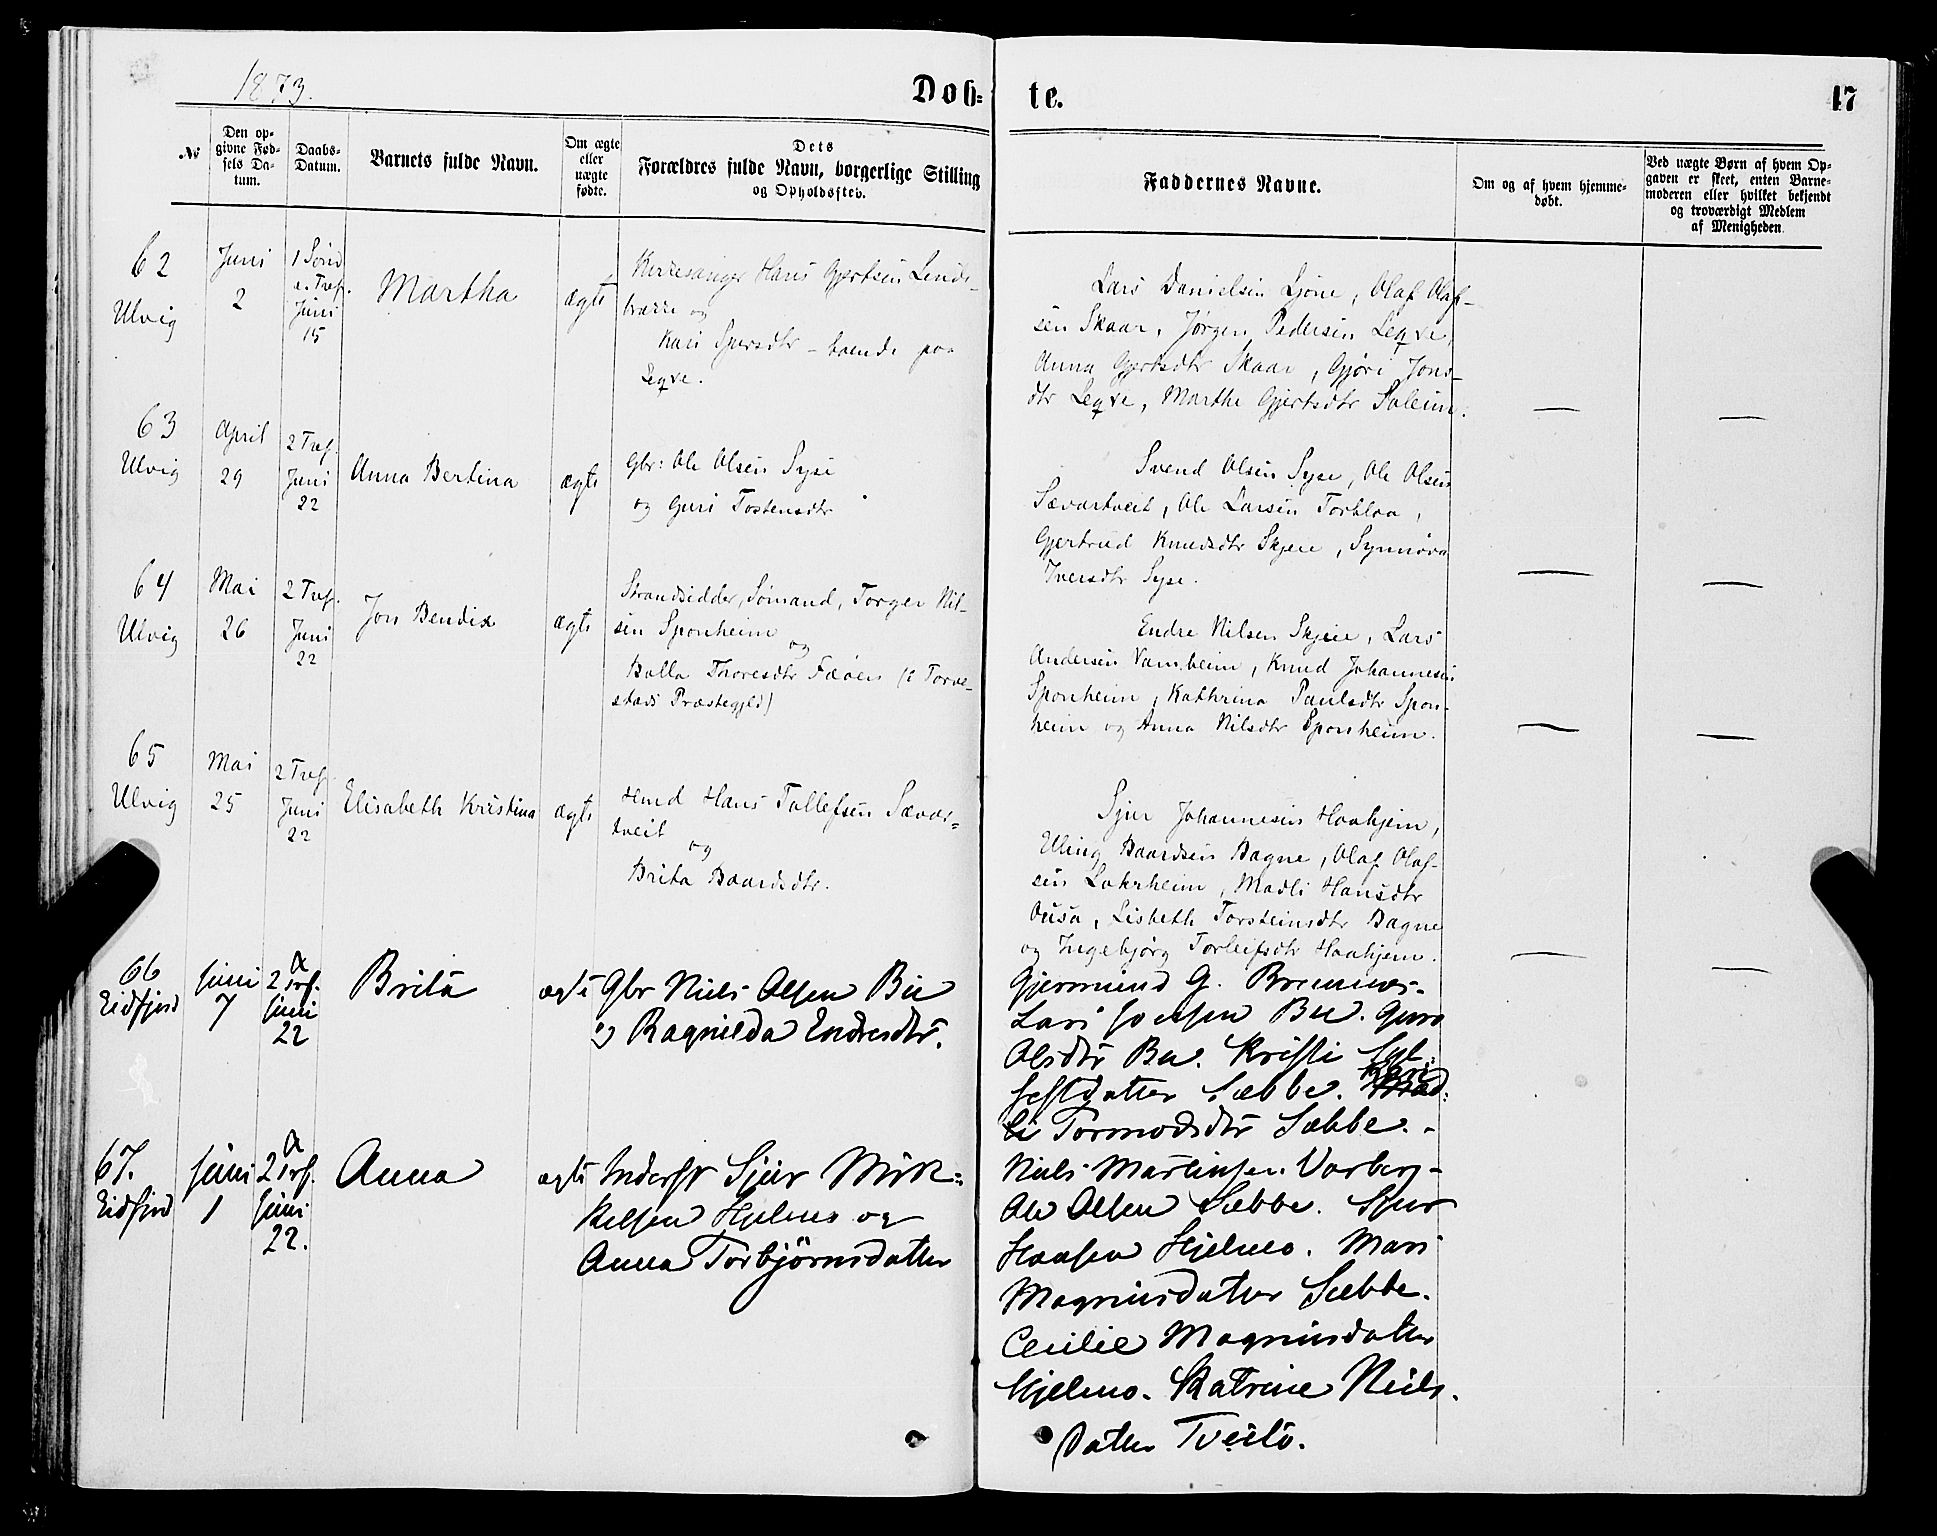 1873.
Døb-
te.
17
№
Den op-
givne Fød-
sels Da-
tum.
Daabs-
Datum.
Barnets fulde Navn.
Om ægte
eller
uægte
fødte.
Dets
Forældres fulde Navn, borgerlige Stilling
og Opholdssted.
Faddernes Navne.
Om og af hvem hjemme-
døbt.
Ved uægte Børn af hvem Op-
gaven er skeet, enten Barne-
moderen eller hvilket bekjendt
og troværdigt Medlem
af Menigheden.
62
Ulvig
Juni
2
1 Sønd
e. Tref.
Juni
15
Martha
ægte
Kirkesanger Hans Gjertsen Linde-
brække og
Kari Sjursdtr - boende paa
Leqve.
Lars Danielsen Ljone, Olaf Olaf-
sen Skaar, Jørgen Pedersen Leqve,
Anna Gjertsdtr Skaar, Gjøri Jons-
dtr Leqve, Marthe Gjertsdtr Soleim.
63
Ulvig
April
29
2 Tref.
Juni
22
Anna Bertina
ægte
Gbr: Ole Olsen Syse
og Guri Tostensdtr
Svend Olsen Syse, Ole Olsen
Sævartveit, Ole Larsen Torblaa,
Gjertrud Knudsdtr Skjeie, Synnøva
Iversdtr Syse.
64
Ulvig
Mai
26
2 Tref.
Juni
22
Jon Bendix
ægte
Strandsidder, Sømand, Torger Nil-
sen Sponheim
og
Bolla Thoresdtr Fæøen (i Torve-
stads Præstegjeld)
Endre Nilsen Skjeie, Lars
Andersen Vamheim, Knud Johannesen
Sponheim, Kathrina Paulsdtr Spon-
heim og Anna Nilsdtr Sponheim.
65
Ulvig
Mai
25
2 Tref.
Juni
22
Elisabeth Kristina
ægte
Hmd Hans Tollefsen Sævar-
tveit
og
Brita Baardsdtr.
Sjur Johannesen Haahjem,
Eling Baardsen Bagne, Olaf Olaf-
sen Lokrheim, Madli Hansdtr
Ousa, Lisbeth Torsteinsdtr Bagne
og Ingebjørg Torleifsdtr Haahjem.
66
Eidfjord
Juni
7
2 Trf.
Juni
22
Brita
ægte
Gbr Niels Olsen Bu
og Ragnilda Endresdtr.
Gjermund G. Bremnes.
Lars Joensen Bu. Guro
Olsdtr Bu. Kristi
datter Sæbbe. Kari
Tormodsdtr Sæbbe. -
67.
Eidfjord
Juni
1
2 Trf.
Juni
22.
Anna
ægte
Inderst Sjur Mik-
kelsen Hjelmo og
Anna Torbjörnsdatter
Niels Martinsen Varberg-
Ole Olsen Sæbbe. Sjur
Haasen Hjelmo. Mari
Magnusdatter Sæbbe.
Cecilie Magnusdatter
Hjelmo. Katrine Niels-
datter Tveito.